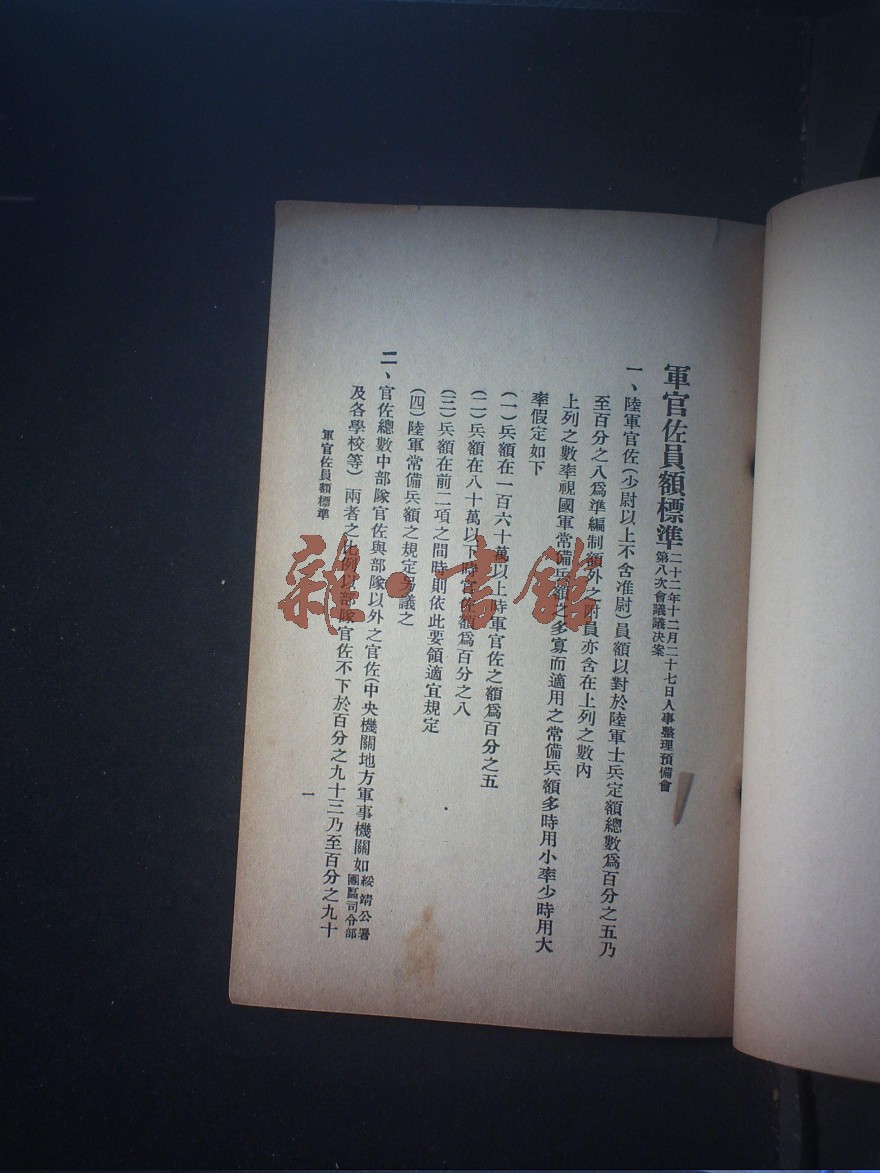 軍官佐員額標準
二十二年十二月二十七日人事整理預備會
第八次會議議決案
一、陸軍官佐(少尉以上不含准尉)員額以對於陸軍士兵定額總數爲百分之五乃
至百分之八爲準編制額外之附員亦含在上列之數內
上列之數率視國軍常備兵額之多寡而適用之常備兵額多時用小率少時用大
率假定如下
(一)兵額在一百六十萬以上時軍官佐之額爲百分之五
(二)兵額在八十萬以下時官佐額爲百分之八
(三)兵額在前二項之間時則依此要領適宜規定
(四)陸軍常備兵額之規定另議之
二、官佐總數中部隊官佐與部隊以外之官佐(中央機關地方軍事機關如綏靖公署
團區司令部
及各學校等)兩者之比例以部隊官佐不下於百分之九十三乃至百分之九十
軍官佐員額標準
一
雜·書館